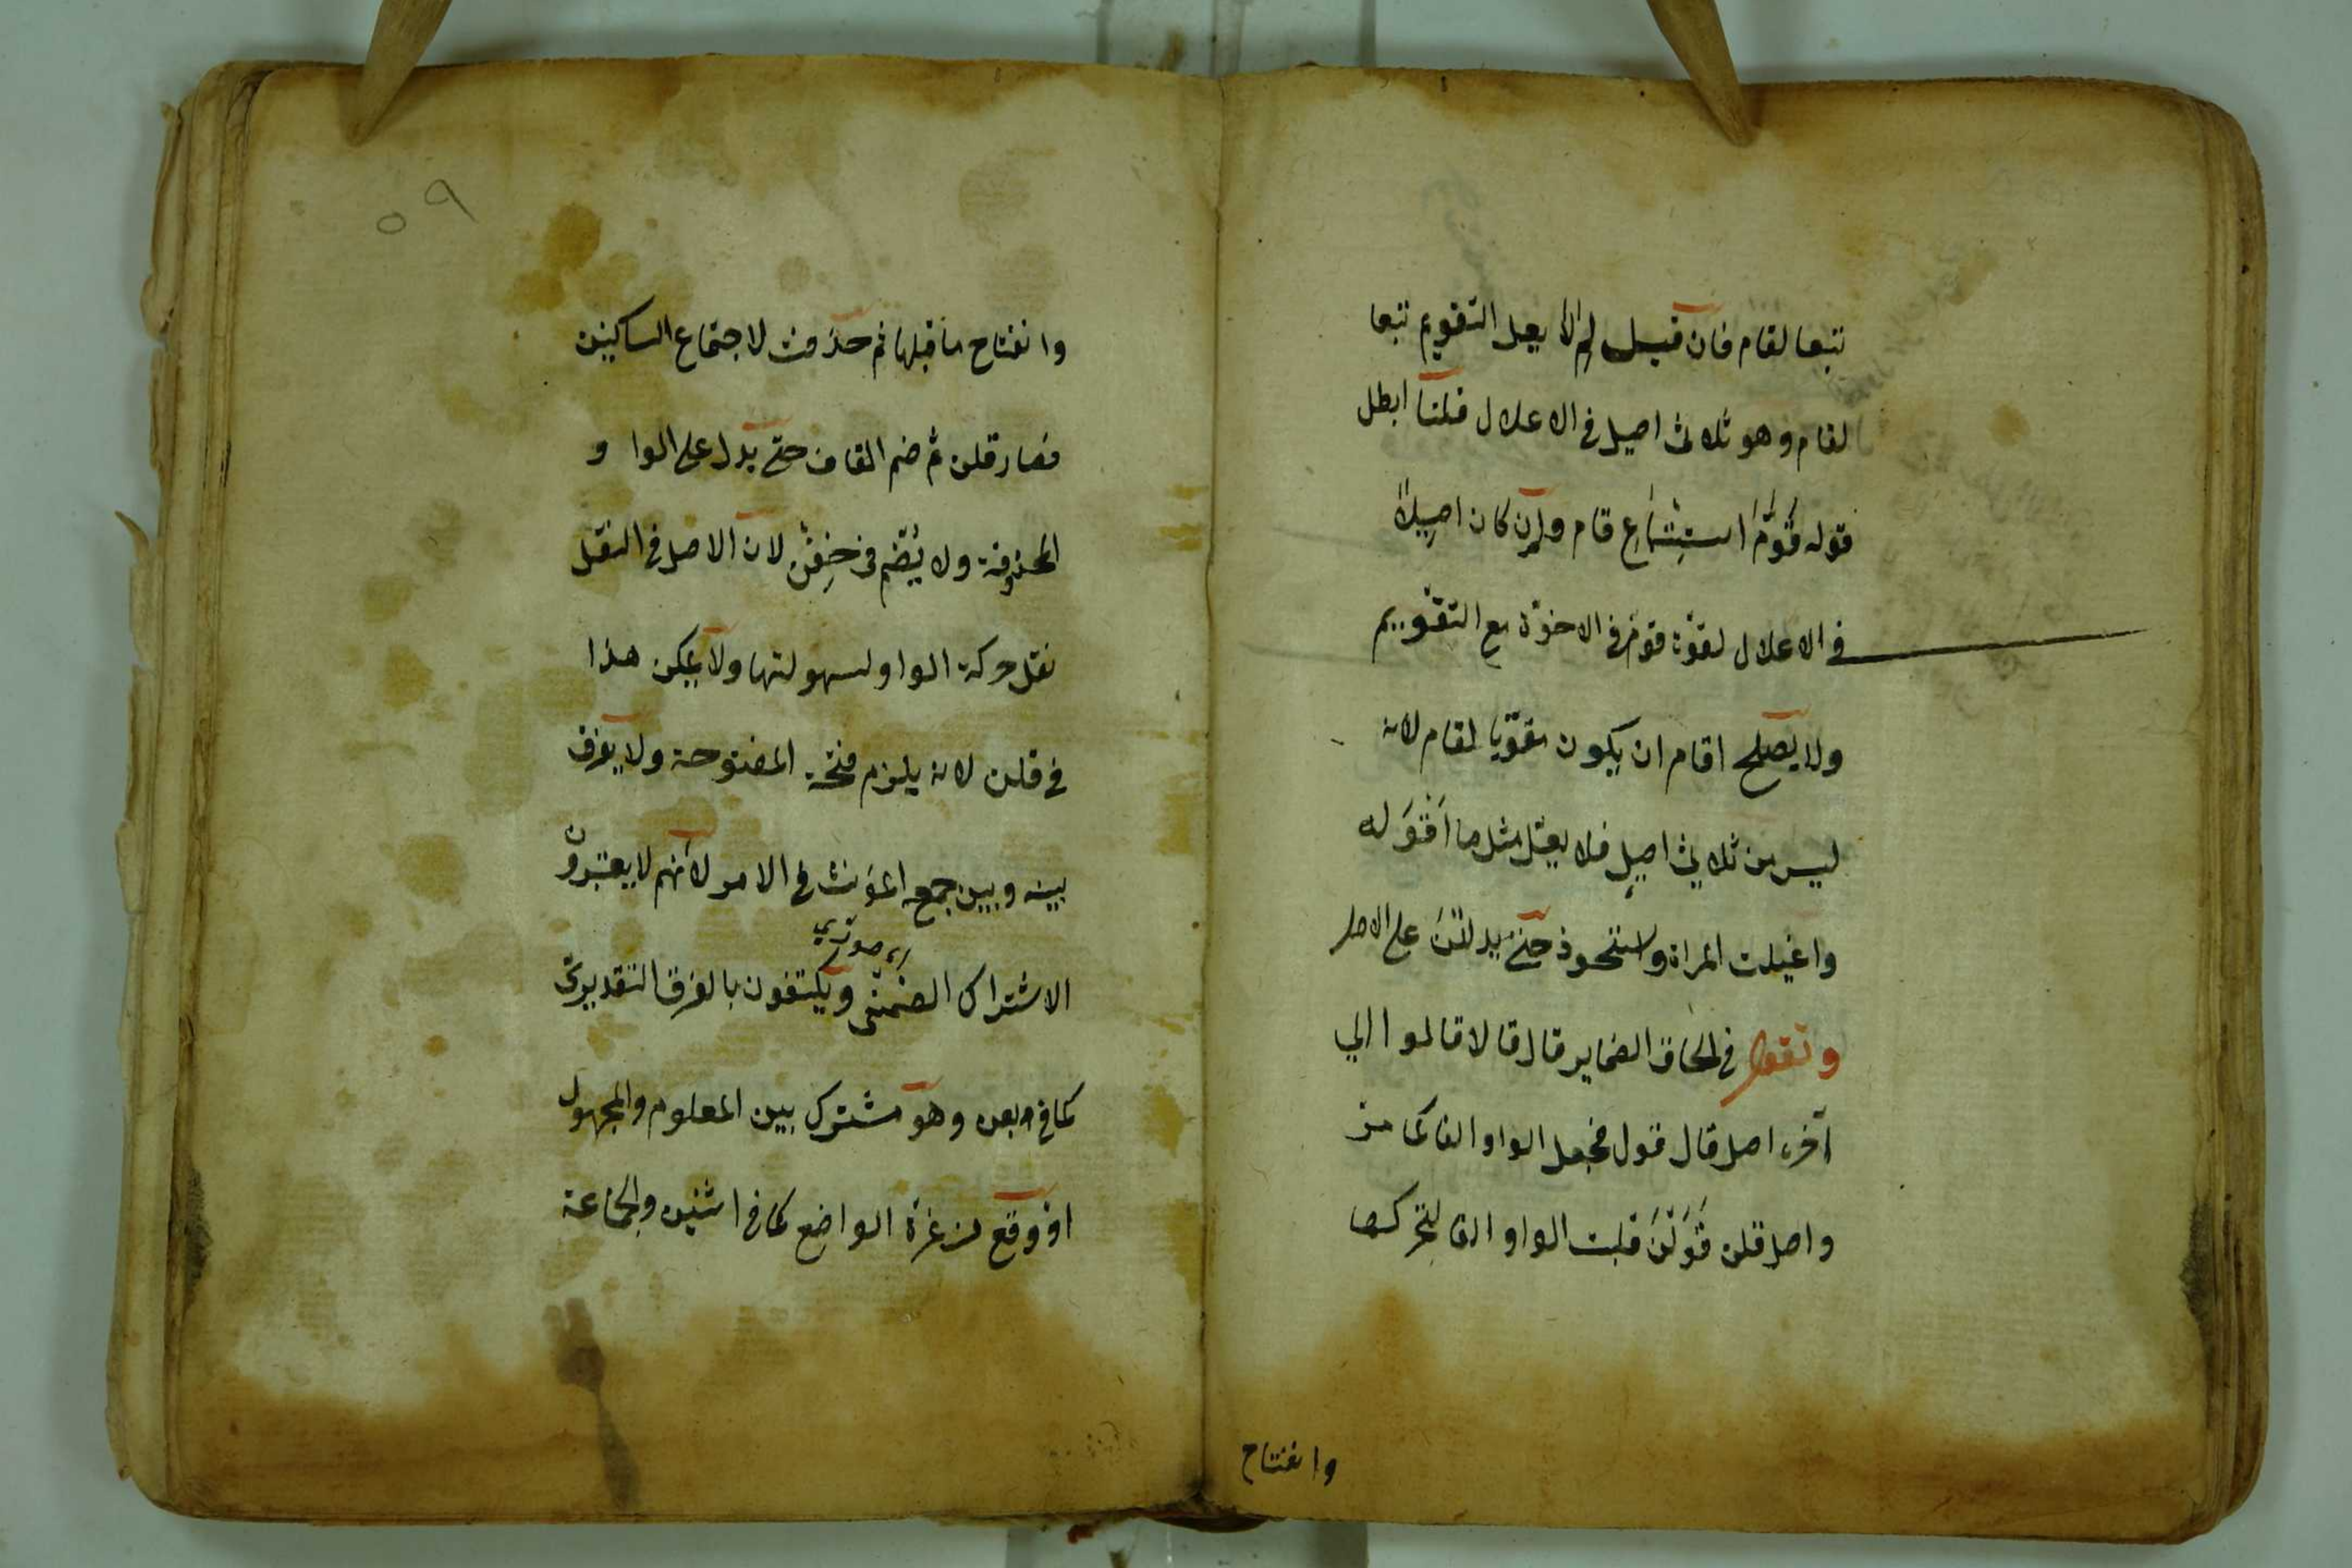 تبعا لقام فان قيل لم لا يعل التقويم تبعا
لقام وهو ثلاثي اصيل في الاعلال قلنا ابطل
قوله قَوَّمَ استتباع قام وان كان اصيلاً
في الاعلال لقوّة قوّم في الاخوّة مع التقويم
ولا يصلح اقام ان يكون مقويا لقام لانه
ليس من ثلاثي اصيل فلا يعل مثل ما اَقْوَله
واغيلت المراة واستحوذ حتى يدللن على الاصل
وتقول في الحاق الضماير قال قالا قالوا الي
آخره اصل قال قول فجعل الواو الفا كما مر
واصل قلن قَوَلْنَ قلبت الواو الفا لتحركها
وانفتاح
٥٩
وانفتاح ما قبلها ثم حذفت لاجتماع الساكنين
فصار قلن ثم ضم القاف حتى يدل على الوا و
المحذوفة ولا يُضم في خِفْنَ لان الاصل في النقل
نقل حركة الواو لسهولتها ولا يمكن هذا
في قلن لانه يلزم فتحة المفتوحة ولا يفرق
بينه وبين جمع المؤنث في الامر لانهم لا يعتبرون
اى صوري
الاشتراك الضمنى ويكتفون بالفرق التقديرى
كما في بعن وهو مشترك بين المعلوم والمجهول
او وقع من غرة الواضع كما في اثنين والجماعة